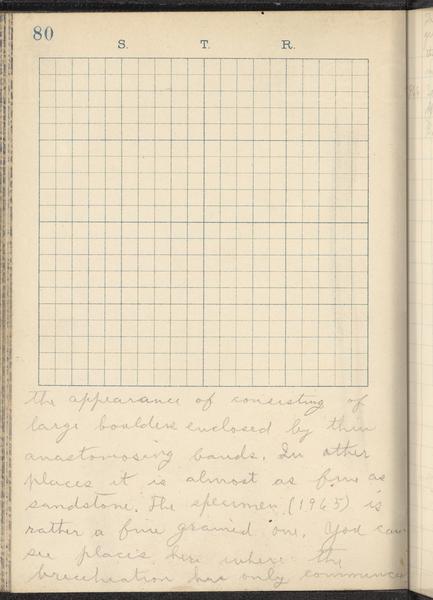 80
S. T. R.
the appearance of consisting of
large boulders enclosed by thin
anastomosing bands. In other
places it is almost as fine as
sandstone. The specimen (1965) is
rather a fine grained one. You can
see places here where the
brecciation has only commenced